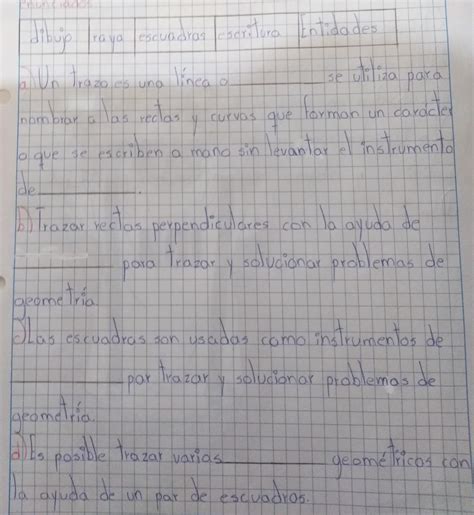 enunciados
dibujo raya escuadras escritura Entidades
a) Un trazo es una línea o ________ se utiliza para
nombrar a las rectas y curvas que forman un carácter
o que se escriben a mano sin levantar el instrumento
de ________.
b) Trazar rectas perpendiculares con la ayuda de
________ para trazar y solucionar problemas de
geometría.
c) Las escuadras son usadas como instrumentos de
________ par trazar y solucionar problemas de
geometría.
d) Es posible trazar varias ________ geométricas con
la ayuda de un par de escuadras.